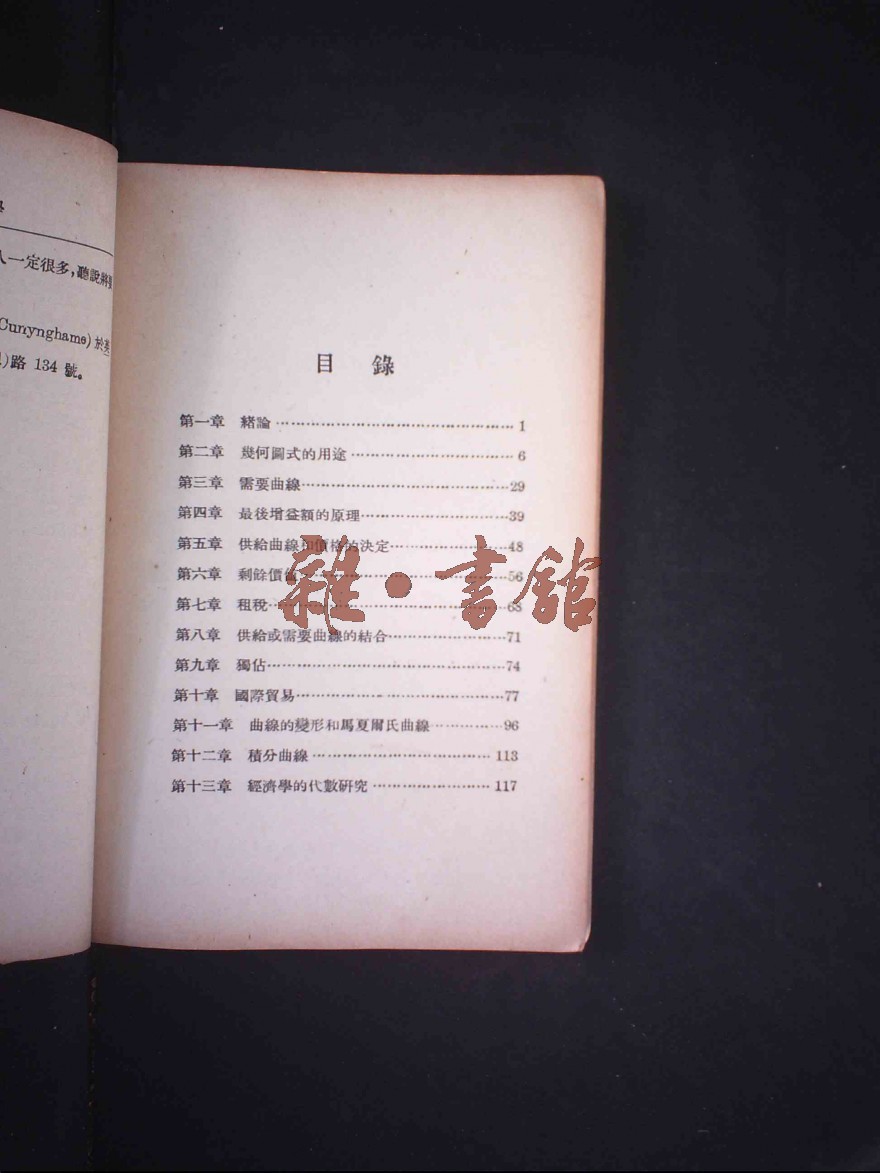 人一定很多,聽說
Cunynghame)於
)路 134 號。
目錄
第一章 緒論 1
第二章 幾何圖式的用途 6
第三章 需要曲線 29
第四章 最後增益額的原理 39
第五章 供給曲線和價格的決定 48
第六章 剩餘價值 56
第七章 租稅 68
第八章 供給或需要曲線的結合 71
第九章 獨佔 74
第十章 國際貿易 77
第十一章 曲線的變形和馬夏爾氏曲線 96
第十二章 積分曲線 113
第十三章 經濟學的代數研究 117
雜·書館